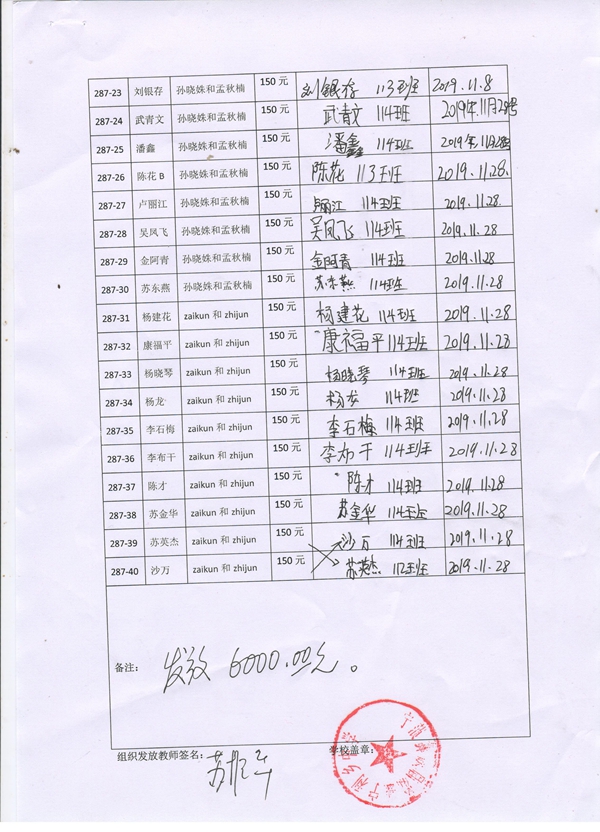 287-23 刘银存 孙晓姝和孟秋楠 150 元 刘银存 113班 2019.11.8
287-24 武青文 孙晓姝和孟秋楠 150 元 武青文 114班 2019年11月28号
287-25 潘鑫 孙晓姝和孟秋楠 150 元 潘鑫 114班 2019年11月28
287-26 陈花 B 孙晓姝和孟秋楠 150 元 陈花 113班 2019.11.28.
287-27 卢丽江 孙晓姝和孟秋楠 150 元 卢丽江 114班 2019.11.28.
287-28 吴凤飞 孙晓姝和孟秋楠 150 元 吴凤飞 114班 2019.11.28.
287-29 金阿青 孙晓姝和孟秋楠 150 元 金阿青 114班 2019.11.28
287-30 苏东燕 孙晓姝和孟秋楠 150 元 苏东燕 114班 2019.11.28
287-31 杨建花 zaikun 和 zhijun 150 元 杨建花 114班 2019.11.28
287-32 康福平 zaikun 和 zhijun 150 元 康福平 114班 2019.11.28
287-33 杨晓琴 zaikun 和 zhijun 150 元 杨晓琴 114班 2019.11.28
287-34 杨龙 zaikun 和 zhijun 150 元 杨龙 114班 2019.11.28
287-35 李石梅 zaikun 和 zhijun 150 元 李石梅 114班 2019.11.28
287-36 李布干 zaikun 和 zhijun 150 元 李布干 114班 2019.11.28
287-37 陈才 zaikun 和 zhijun 150 元 陈才 114班 2019.11.28
287-38 苏金华 zaikun 和 zhijun 150 元 苏金华 114班 2019.11.28
287-39 苏英杰 zaikun 和 zhijun 150 元 沙万 114班 2019.11.28
287-40 沙万 zaikun 和 zhijun 150 元 苏英杰 112班 2019.11.28
备注： 发放 6000.00元。
组织发放教师签名： 学校盖章：